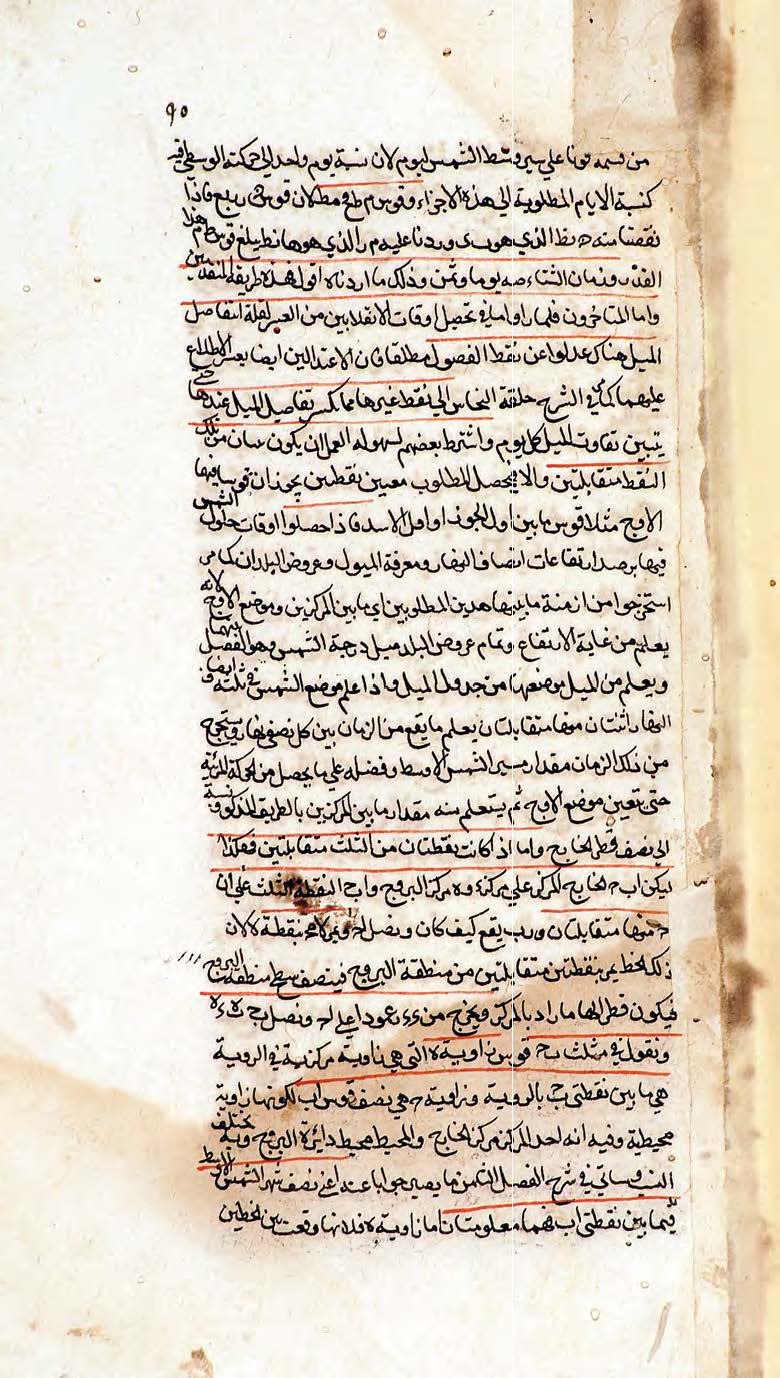 ٩٥
من قسمه قوتا علي سير وسط الشمس ليوم لان نسبة يوم واحد الي حركته الوسطي فيه
كنسبة الايام المطلوبة الي هذه الاجزاء وقوس م ط ح في مطلان قوس ربيع فاذا
نقصنا منه ح نط الذي هو ب ى وردنا عليه م ر الذي هو ها نط يبلغ قوس ط م هذا
القدر وزمان الشتاء صه يوما وثمن وذلك ما اردناه اقول هذه طريقة المتقدمين
واما المتاخرون فلما راوا ما في تحصيل اوقات الانقلابين من العسر لقلة تفاصيل
الميل هناك عدلوا عن نقط الفصول مطلقا فان الاعتدالين ايضا يعسر الاطلاع
عليهما كما مر في الشرح حلقة النحاس الي نقط غيرها مما يكثر تفاصيل الميل عندها حتي
يتبين تفاوت الميل كل يوم واشترط بعضهم لسهولة العمل ان يكون من تلك
النقط متقابلتين والا فيحصل المطلوب معين نقطتين يحوزان قوسا فيها
الاوج مثلا قوس ما بين اول الجوزا واول الاسد فاذا حصلوا اوقات حلول الشمس
فيها برصد ارتفاعات انصاف النهار ومعرفة الميول وعروض البلدان كما مر
استخرجوا من ازمنة ما بينها هدين المطلوبين اي ما بين المركزين وموضع الاوج لانه
يعلم من غاية الارتفاع وتمام عروض البلد ميل درجة الشمس وهو الفصل بينهما
ويعلم من الميل موضعها من جدول الميل واذا علم موضع الشمس في ثلثة ايضا
النهار اثنتان منها متقابلتان يعلم ما يقع من الزمان بين كل نصفي نهار ويستخرج
من ذلك الزمان مقدار مسير الشمس الاوسط وفضله علي ما يحصل من الحركة المرئية
حتي يتعين موضع الاوج ثم يستعلم منه مقدار ما بين المركزين بالطريق المذكور نسبة
الي نصف قطر الخارج واما اذ كانت نقطتان من الثلث متقابلتين فهكذا
ليكن اب ح الخارج المركز علي مركز ء و ه مركز البروج و اب ح النقطة الثلث علي ان
ح منها متقابلتان و ب يقع كيف كان ونصل ا ح ويمر لا محـ بنقطة ه لان
ذلك الخط يمر بنقطتين متقابلتين من منطقة البروج فينصف سطح منطقة البروج
فيكون قطر الها مارا بالمركز ويخرج من ء ء ر عمودا علي ا ح ونصل ب ح ه ء
ونقول في مثلث ب ح ه قوس زاوية ه التي هي زاوية مركزية في الروية
هي ما بين نقطتي ب ح بالروية وزاوية ح هي نصف قوس اب لكونها زاوية
محيطية وفيه انه احد المركز مركز الخارج والمحيط محيط دايرة البروج وبه يختلف
النسب وسياتي في شرح الفصل الثامن ما يصير جوابا عنه اعني نصف سير الشمس الاوسط
فيما بين نقطتي اب فهما معلومتان اما زاوية ه فلانها وقعت بين الخطين